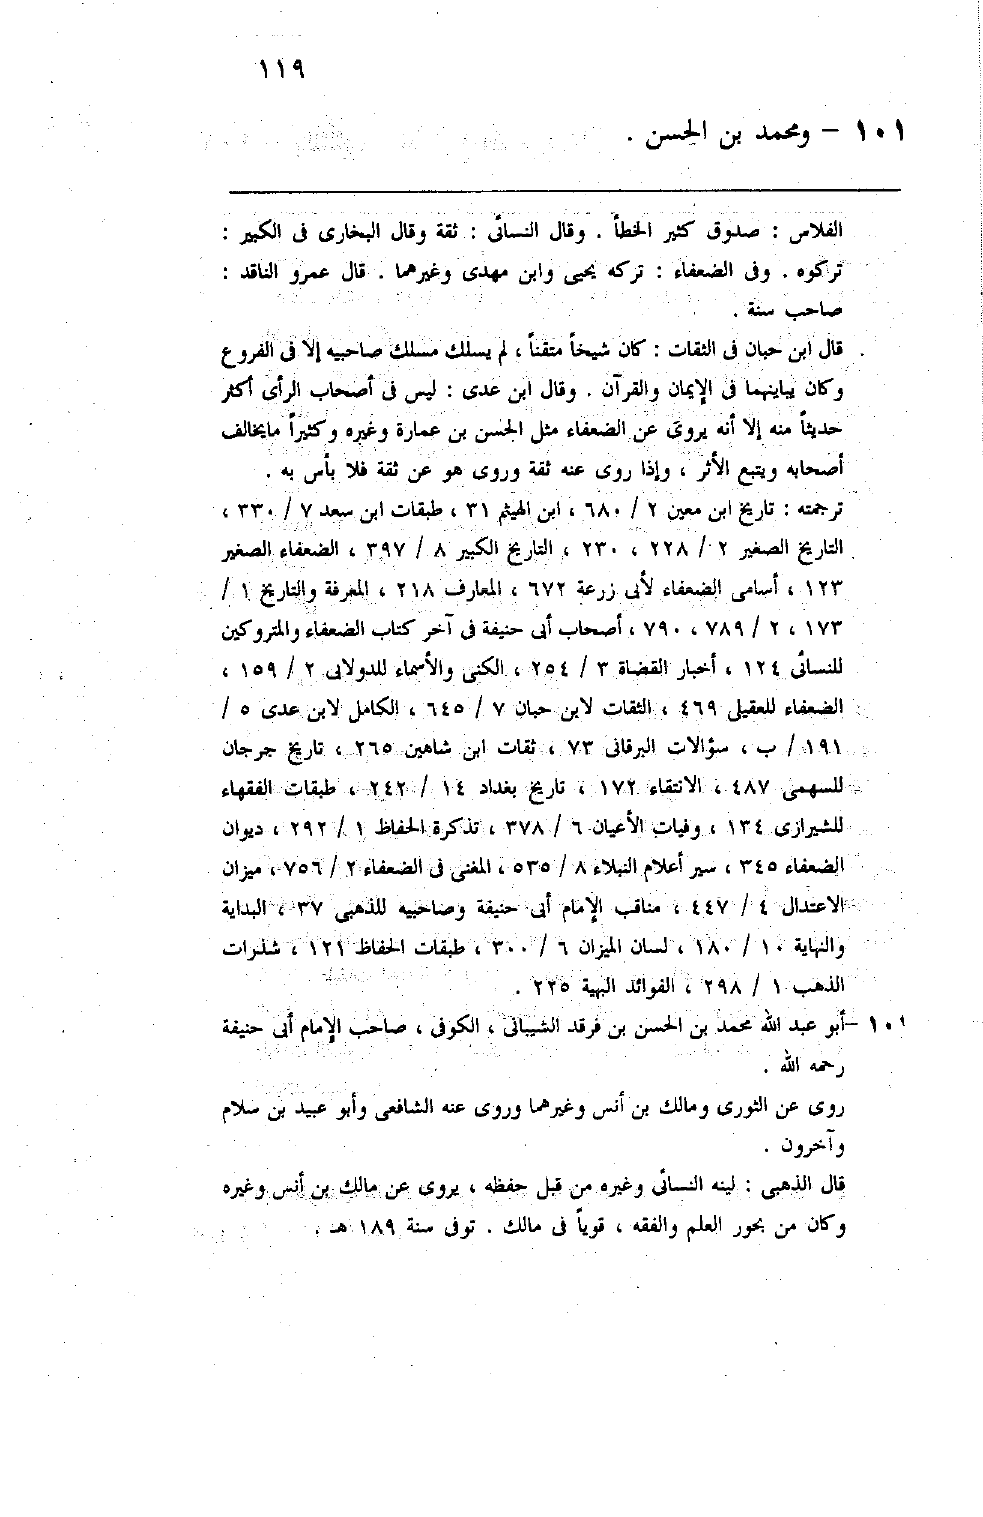 ١١٩
١٠١ – ومحمد بن الحسن .
الفلاس : صدوق كثير الخطأ . وقال النسائى : ثقة وقال البخارى فى الكبير :
تركوه . وفى الضعفاء : تركه يحيى وابن مهدى وغيرهما . قال عمرو الناقد :
صاحب سنة .
قال ابن حبان فى الثقات : كان شيخاً متقناً ، لم يسلك مسلك صاحبيه إلا فى الفروع
وكان يباينهما فى الإيمان والقرآن . وقال ابن عدى : ليس فى أصحاب الرأى أكثر
حديثاً منه إلا أنه يروى عن الضعفاء مثل الحسن بن عمارة وغيره وكثيراً مايخالف
أصحابه ويتبع الأثر ، وإذا روى عنه ثقة وروى هو عن ثقة فلا بأس به .
ترجمته : تاريخ ابن معين ٢ / ٦٨٠ ، ابن الهيثم ٣١ ، طبقات ابن سعد ٧ / ٣٣٠ ،
التاريخ الصغير ٢ / ٢٢٨ ، ٢٣٠ ، التاريخ الكبير ٨ / ٣٩٧ ، الضعفاء الصغير
١٢٣ ، أسامى الضعفاء لأبى زرعة ٦٧٢ ، المعارف ٢١٨ ، المعرفة والتاريخ ١ /
١٧٣ ، ٢ / ٧٨٩ ، ٧٩٠ ، أصحاب أبى حنيفة فى آخر كتاب الضعفاء والمتروكين
للنسائى ١٢٤ ، أخبار القضاة ٣ / ٢٥٤ ، الكنى والأسماء للدولابى ٢ / ١٥٩ ،
الضعفاء للعقيلى ٤٦٩ ، الثقات لابن حبان ٧ / ٦٤٥ ، الكامل لابن عدى ٥ /
١٩١ / ب ، سؤالات البرقانى ٧٣ ، ثقات ابن شاهين ٢٦٥ ، تاريخ جرجان
للسهمى ٤٨٧ ، الانتقاء ١٧٢ ، تاريخ بغداد ١٤ / ٢٤٢ ، طبقات الفقهاء
للشيرازى ١٣٤ ، وفيات الأعيان ٦ / ٣٧٨ ، تذكرة الحفاظ ١ / ٢٩٢ ، ديوان
الضعفاء ٣٤٥ ، سير أعلام النبلاء ٨ / ٥٣٥ ، المغنى فى الضعفاء ٢ / ٧٥٦ ، ميزان
الاعتدال ٤ / ٤٤٧ ، مناقب الإمام أبى حنيفة وصاحبيه للذهبى ٣٧ ، البداية
والنهاية ١٠ / ١٨٠ ، لسان الميزان ٦ / ٣٠٠ ، طبقات الحفاظ ١٢١ ، شذرات
الذهب ١ / ٢٩٨ ، الفوائد البهية ٢٢٥ .
١٠١ –أبو عبد الله محمد بن الحسن بن فرقد الشيبانى ، الكوفى ، صاحب الإمام أبى حنيفة
رحمه الله .
روى عن الثورى ومالك بن أنس وغيرهما وروى عنه الشافعى وأبو عبيد بن سلام
وآخرون .
قال الذهبى : لينه النسائى وغيره من قبل حفظه ، يروى عن مالك بن أنس وغيره
وكان من بحور العلم والفقه ، قوياً فى مالك . توفى سنة ١٨٩ هـ .